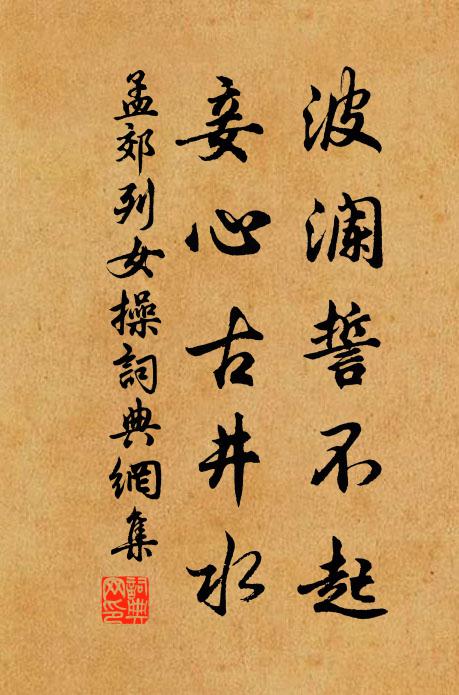 波澜誓不起
妾心古井水
孟郊列女操詞典網集
詞典
网印